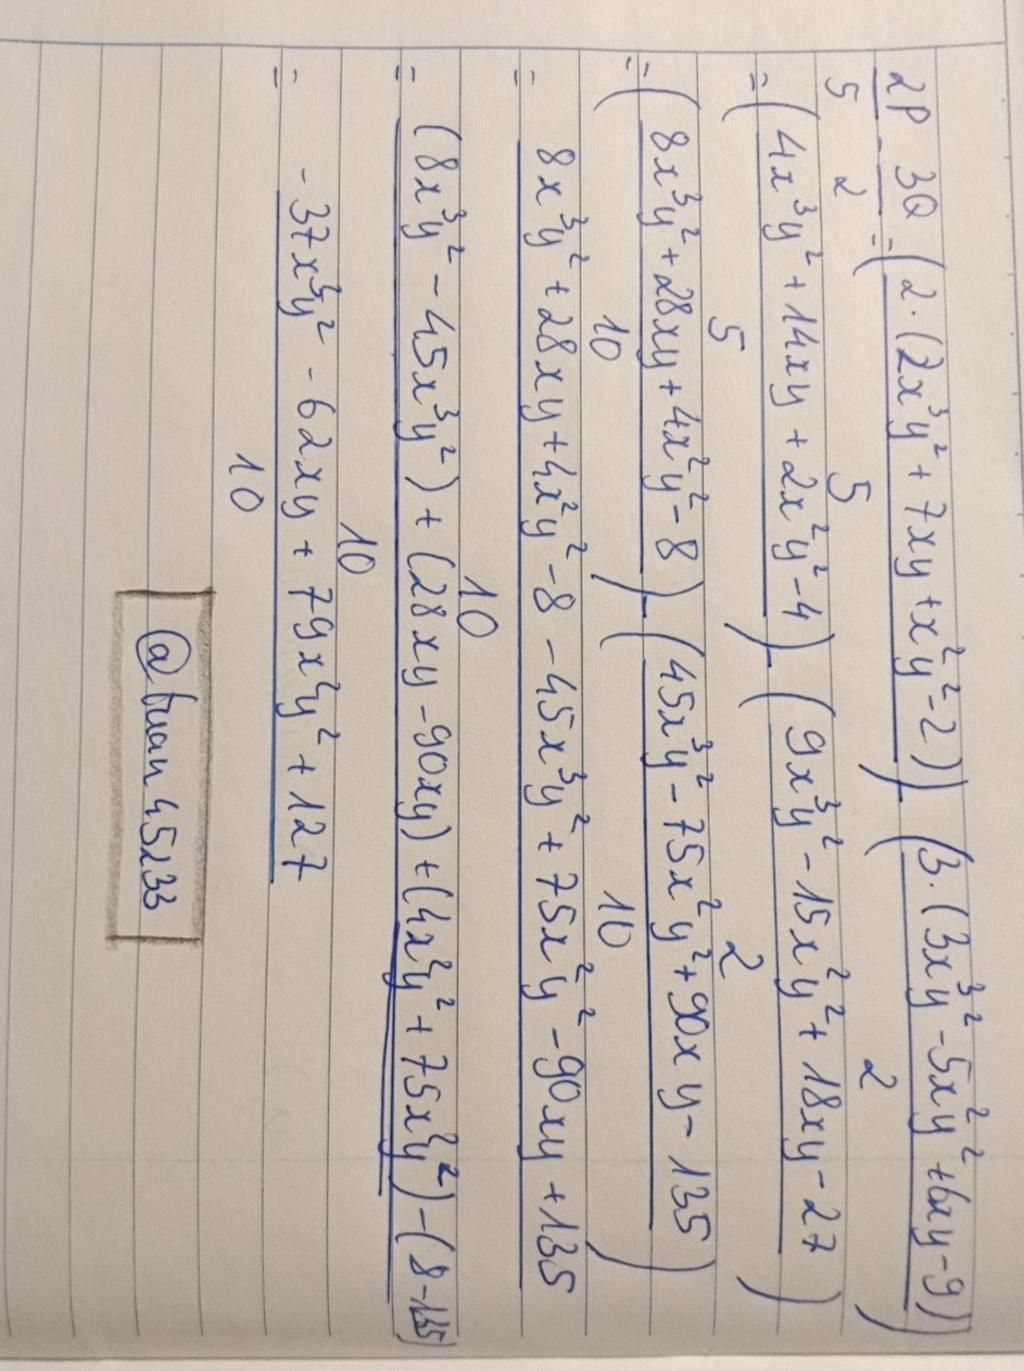 2P/5 - 3Q/2 = (2·(2x³y² + 7xy + x²y² - 2))/5 - (3·(3x³y² - 5x²y² + 6xy - 9))/2
= (4x³y² + 14xy + 2x²y² - 4)/5 - (9x³y² - 15x²y² + 18xy - 27)/2
= (8x³y² + 28xy + 4x²y² - 8)/10 - (45x³y² - 75x²y² + 90xy - 135)/10
= 8x³y² + 28xy + 4x²y² - 8 - 45x³y² + 75x²y² - 90xy + 135/10
= (8x³y² - 45x³y²) + (28xy - 90xy) + (4x²y² + 75x²y²) - (8 - 135)/10
= -37x³y² - 62xy + 79x²y² + 127/10